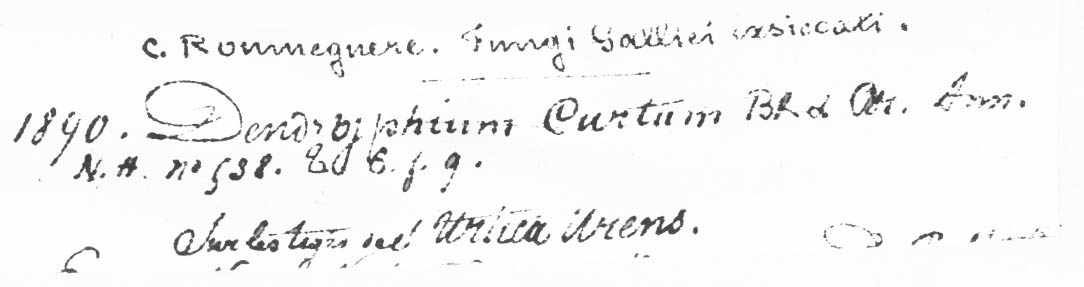 C. Roumeguere. Fungi Gallici exsiccati.
1890. Dendryphium Curtum Bk & Br. Ann.
N. H. no 538. t. 6. f. 9.
Sur les tiges de l'Urtica Urens.